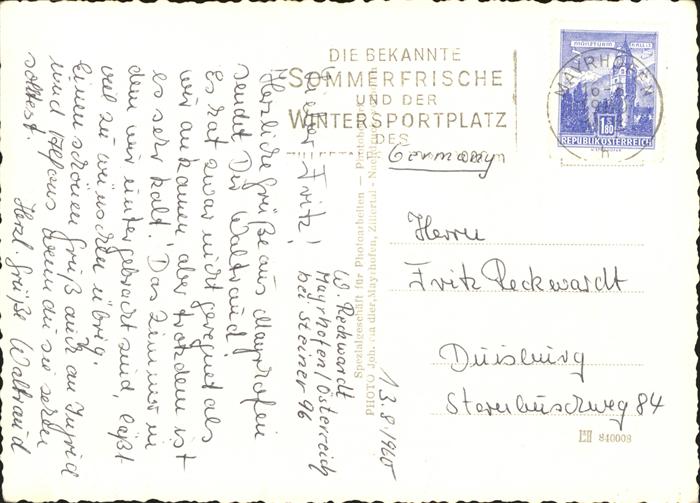 DIE BEKANNTE
SOMMERFRISCHE
UND DER
WINTERSPORTPLATZ
DES
MÜNZTURM HALL i. T.
1.80
REPUBLIK ÖSTERREICH
MAYRHOFEN
Germany
Herrn
Fritz Reckwardt
Duisburg
Sternbuschweg 84
840008
W. Reckwardt
Mayrhofen/Österreich
bei Steiner 96
13.8.1960
Spezialgeschäft für Photoarbeiten —
PHOTO Mayrhofen, Zillertal -
Lieber Fritz!
Herzliche Grüße aus Mayrhofen
sendet Dir Waltraud!
Es hat zwar nicht geregnet als
wir ankamen, aber trotzdem ist
es sehr kalt. Das Zimmer in
dem wir untergebracht sind, läßt
viel zu wünschen übrig.
Einen schönen Gruß auch an Ingrid
und Alfons wenn du sie sehen
solltest. Herzl. Grüße Waltraud